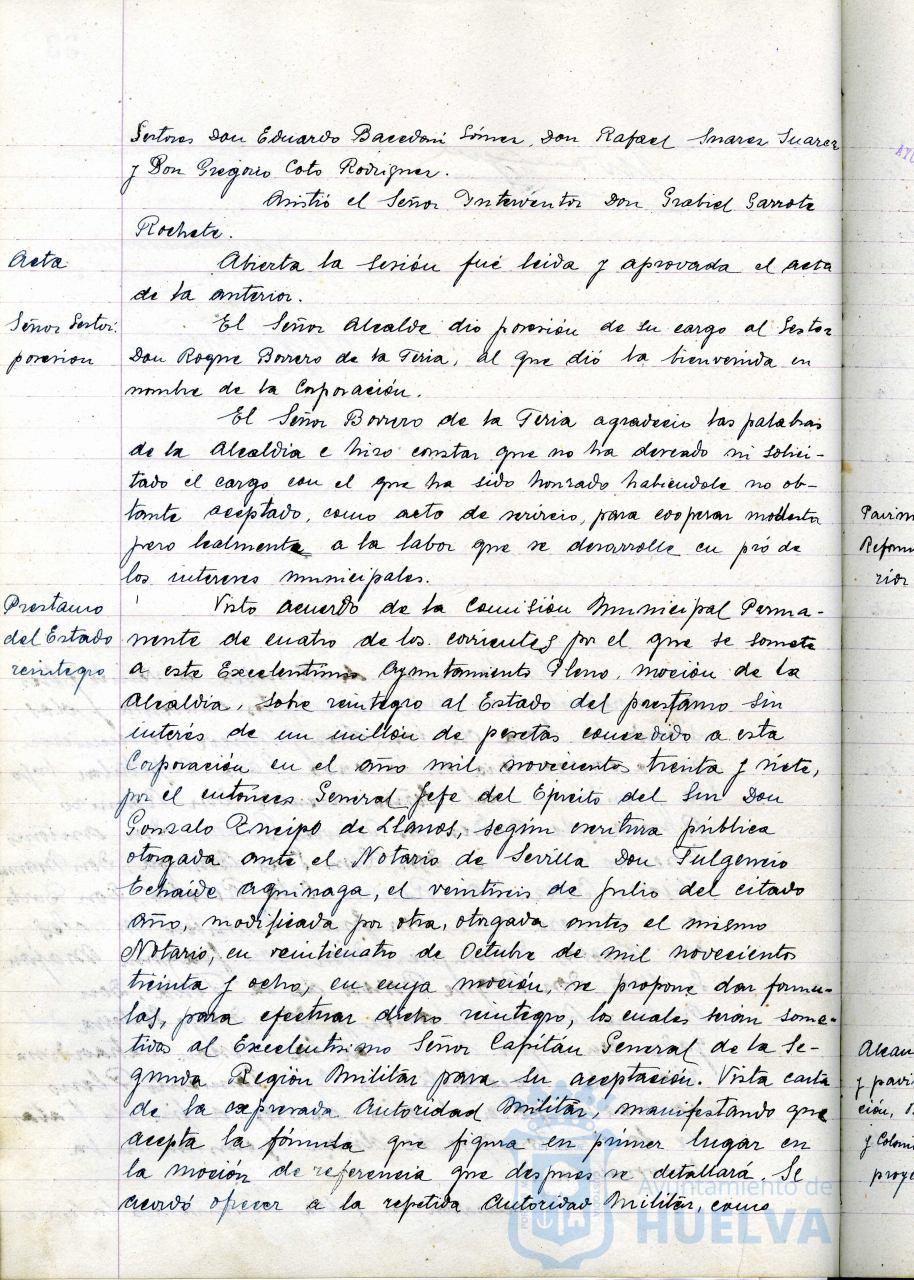 Gestores Don Eduardo Bacedoni Gómez, Don Rafael Suarez Suarez
y Don Gregorio Coto Rodriguez.
Asistió el Señor Interventor Don Grabiel Garrote
Rochete.
Acta
Abierta la sesión fué leida y aprovada el acta
de la anterior.
Señor Gestor.
posesion
El Señor Alcalde dio posesión de su cargo al Gestor
Don Roque Borrero de la Feria, al que dió la bienvenida en
nombre de la Corporación.
El Señor Borrero de la Feria agradecio las palabras
de la Alcaldia e hizo constar que no ha deseado ni solici-
tado el cargo con el que ha sido honrado habiendole no obs-
tante aceptado, como acto de servicio, para cooperar modesta
pero lealmente a la labor que se desarrolle en pró de
los intereses municipales.
Prestamo
del Estado
reintegro
Visto acuerdo de la Comisión Municipal Perma-
nente de cuatro de los corrientes por el que se somete
a este Excelentisimo Ayuntamiento Pleno, moción de la
Alcaldia, sobre reintegro al Estado del prestamo sin
interés de un millón de pesetas concedido a esta
Corporación en el año mil novecientos treinta y siete,
por el entonces General Jefe del Ejercito del Sur Don
Gonzalo Queipo de Llanos, según escritura pública
otorgada ante el Notario de Sevilla Don Fulgencio
Echaide Aguinaga, el veintiseis de Julio del citado
año, modificada por otra, otorgada antes el mismo
Notario, en veinticuatro de Octubre de mil novecientos
treinta y ocho, en cuya moción, se propone dos formu-
las, para efectuar dicho reintegro, los cuales serán some-
tidas al Excelentisimo Señor Capitán General de la Se-
gunda Región Militar para su aceptación. Vista carta
de la expresada Autoridad Militar, manifestando que
acepta la fórmula que figura en primer lugar en
la moción de referencia que despues se detallará. Se
acordó ofrecer a la repetida Autoridad Militar, como
Ayuntamiento de
HUELVA
Refor
rior
y pavi
ción,
y Colon
proye